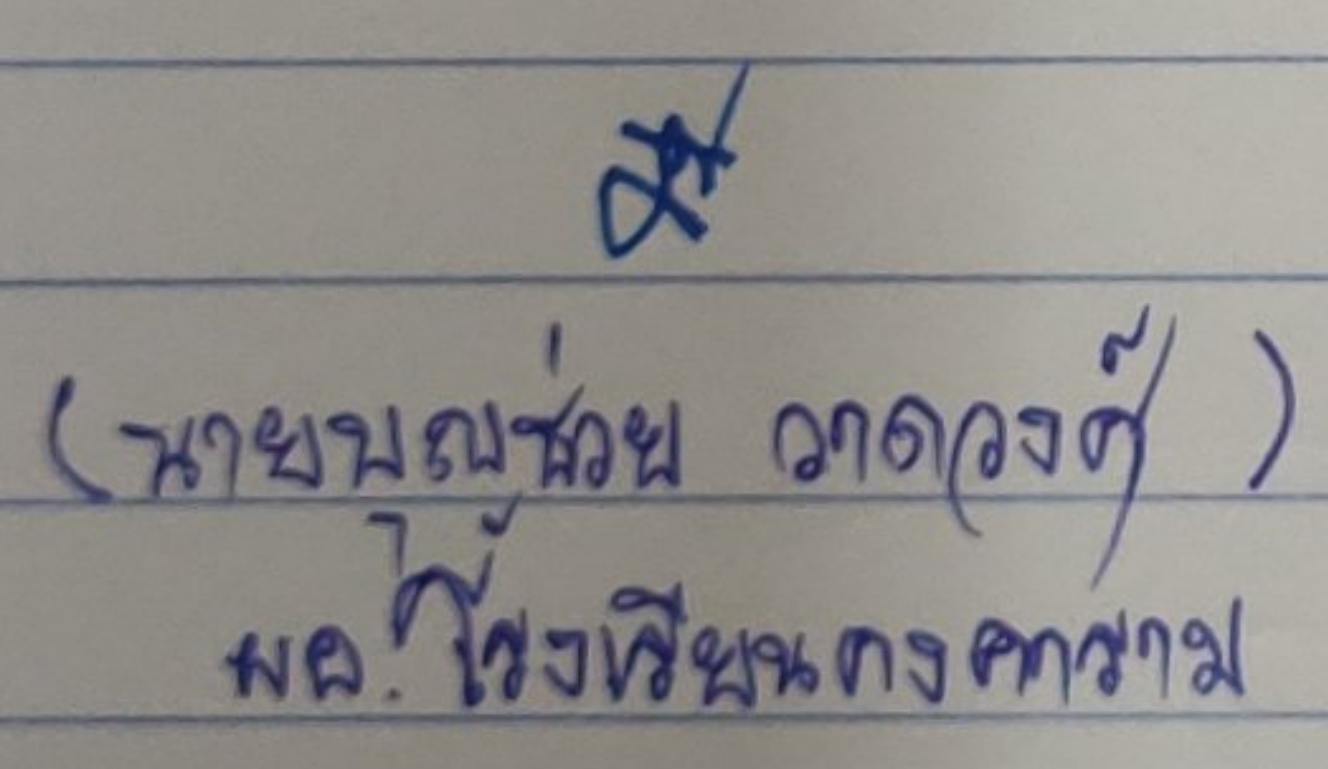 (นายบุญช่วย วาดวงศ์ )
ผอ. โรงเรียนคงคาราม